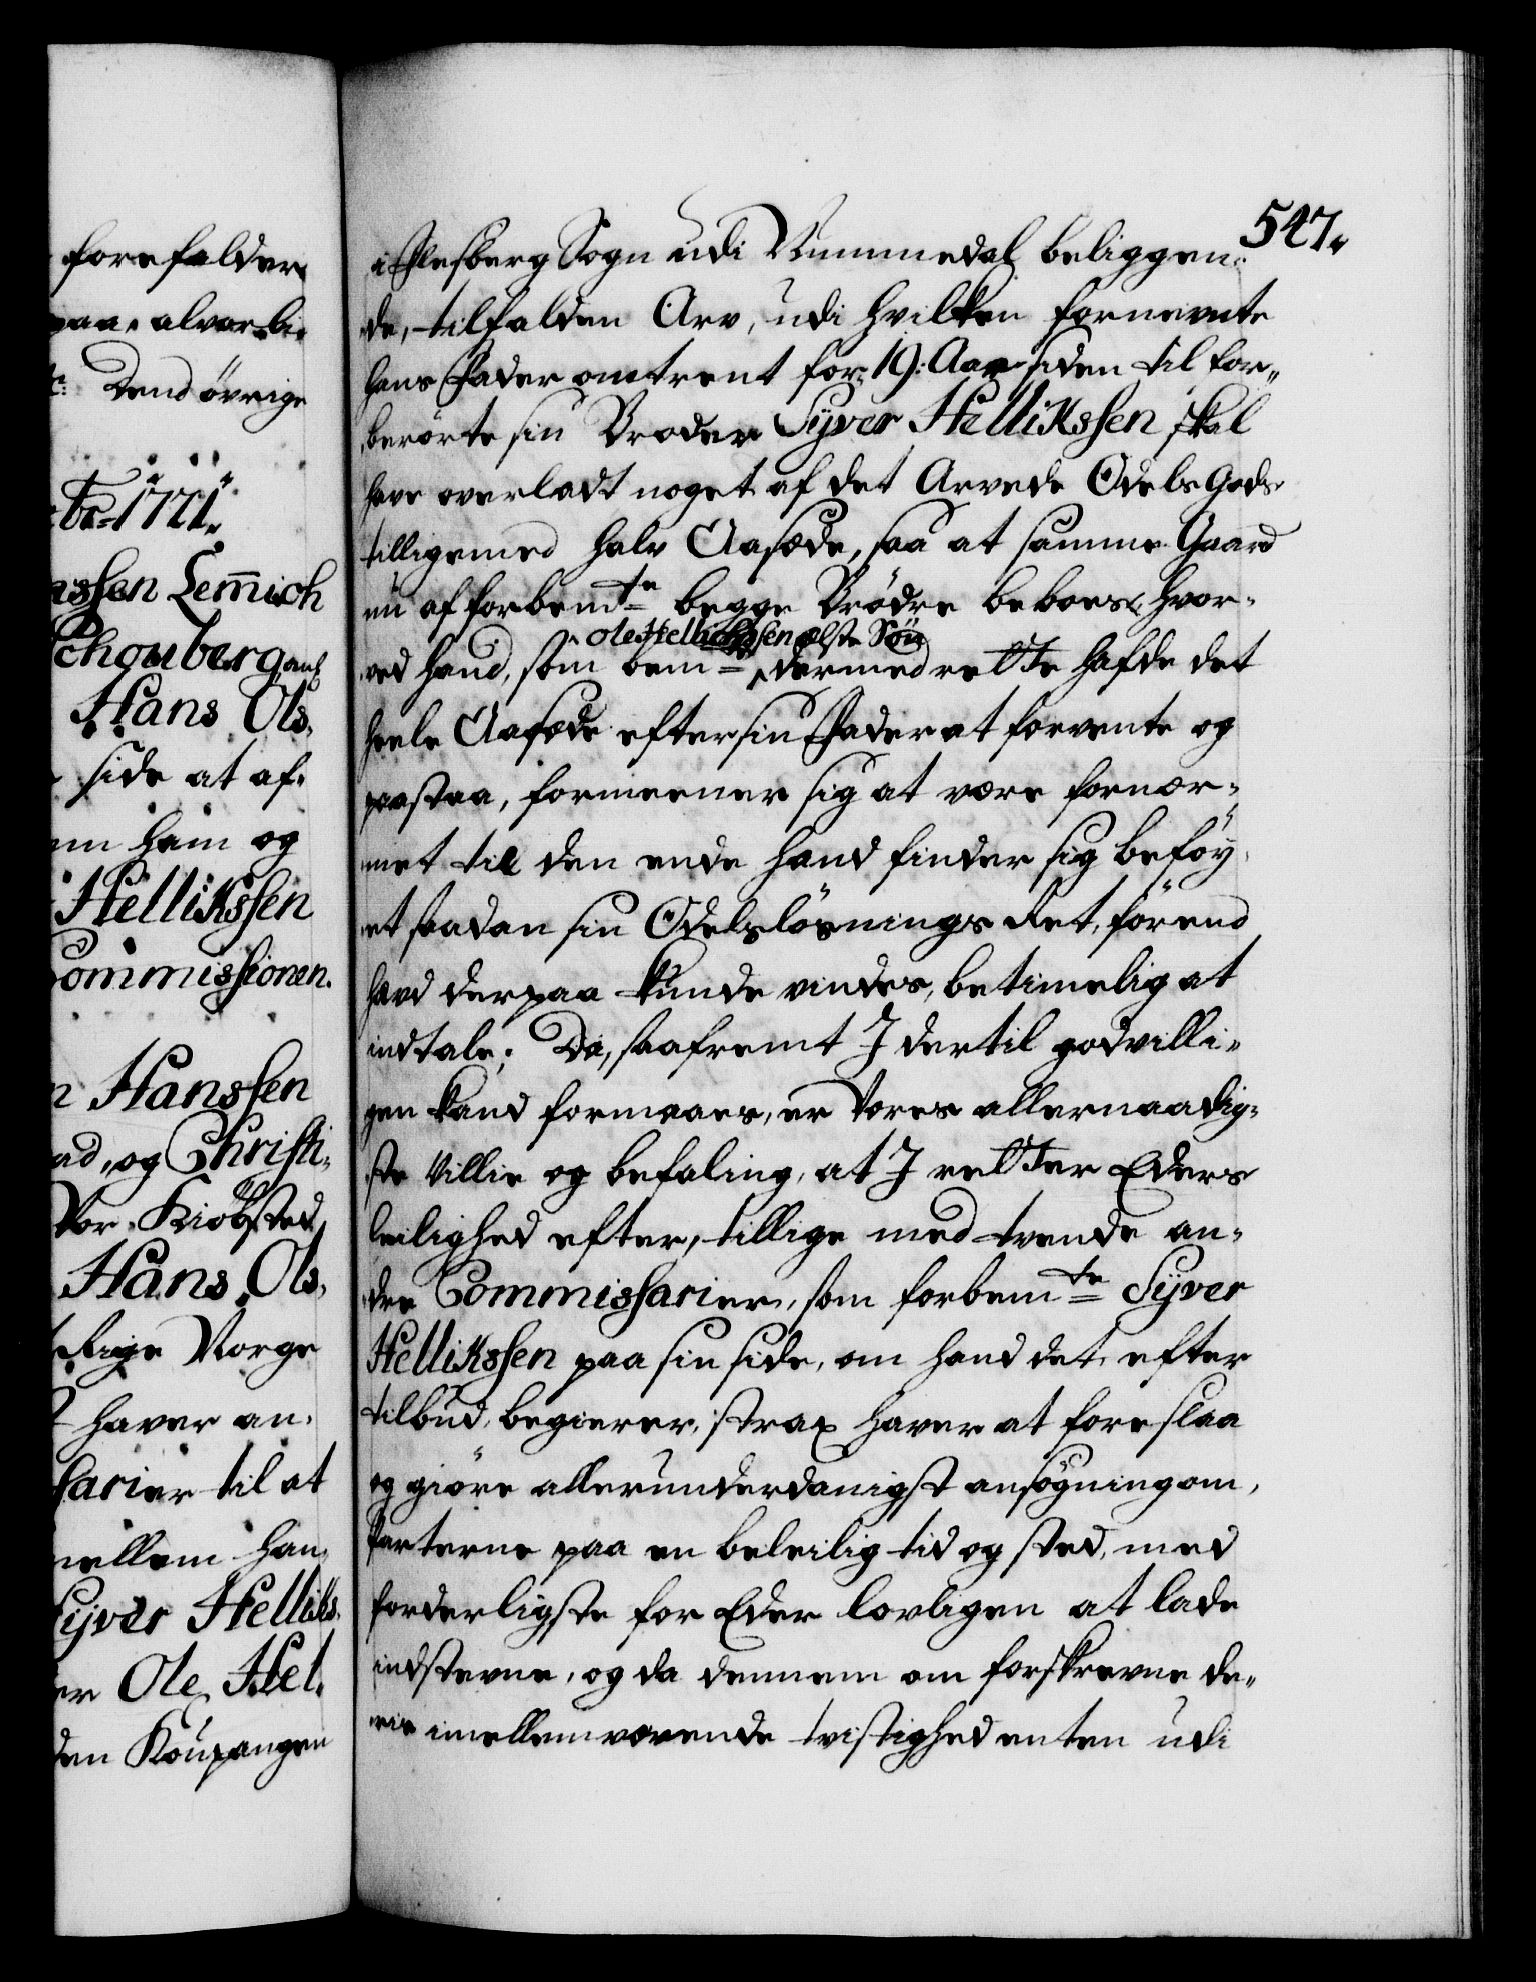 forefalder
paa, alvorli-
Dend övrige
1721.
nssen Lem̅ich
Schouberg, anl
Hans Ols.
side at af-
ham og
Hellikssen
Commissionen.
Hanssen
ad, og Christi-
Vor Kiöbsted
Hans Ols.
Rige Norge
haver an-
sarier til at
mellem han-
Syver Helliks.
er Ole Hel.
den Koupangen
547.
i Flesberg Sogn udi Nummedal beliggen-
de, tilfalden Arv, udi hvilken fornevnte
hans Fader omtrent for 19: Aar siden til for-
berörte sin Broder Syver Hellikssen skal
have overladt noget af det Arvede Odels Gods
tilligemed halv Aasæde, saa at samme Gaard
nu af forbemte begge Brödre beboes, hvor-
ved hand, som bemte Ole Hellichssen ælste Sön dermed rette hafde det
heele Aasæde efter sin Fader at forvente og
paastaa, formeener sig at være fornær-
met til den ende hand finder sig beföy-
et saadan sin Odelslösnings Ret, förend
hævd derpaa kunde vindes, betimelig at
indtale; Da, saafremt I dertil godvilli-
gen kand formaaes, er Vores allernaadig-
ste Villie og befaling, at I retter Eders
leilighed efter, tillige med tvende an-
dre Commissarier, som forbemte Syver
Hellikssen paa sin side, om hand det efter
tilbud, begierer, strax haver at foreslaa
og giöre allerunderdanigst ansögning om,
Parterne paa en beleilig tid og sted, med
forderligste for Eder lovligen at lade
indstevne, og da dennem om forskrevne de-
ris imellemværende tvistighed enten udi